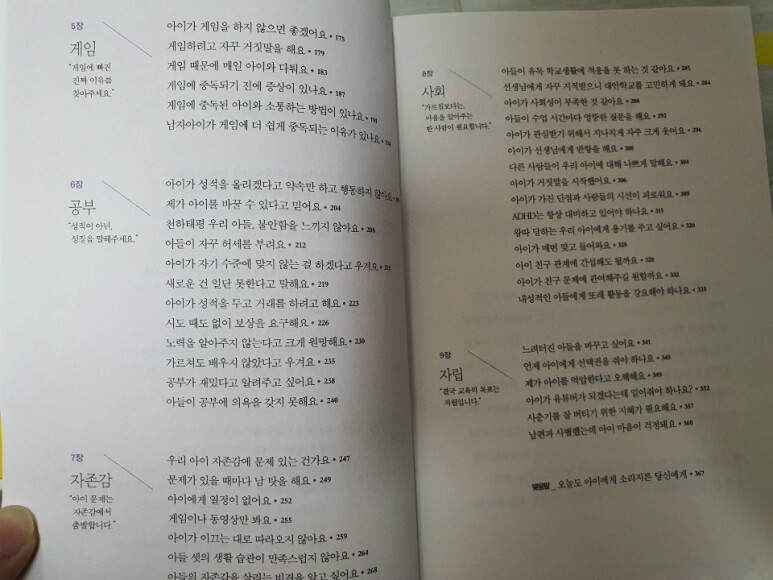 5장
게임
"게임에 빠진
진짜 이유를
찾아주세요."
아이가 게임을 하지 않으면 좋겠어요 • 175
게임하려고 자꾸 거짓말을 해요 • 179
게임 때문에 매일 아이와 다퉈요 • 183
게임에 중독되기 전에 증상이 있나요 • 187
게임에 중독된 아이와 소통하는 방법이 있나요 • 191
남자아이가 게임에 더 쉽게 중독되는 이유가 있나요 •
6장
공부
"성적이 아닌,
성장을 말해주세요."
아이가 성적을 올리겠다고 약속만 하고 행동하지 않아요 •
제가 아이를 바꿀 수 있다고 믿어요 • 204
천하태평 우리 아들, 불안함을 느끼지 않아요 • 208
아들이 자꾸 허세를 부려요 • 212
아이가 자기 수준에 맞지 않는 걸 하겠다고 우겨요 • 215
새로운 건 일단 못한다고 말해요 • 219
아이가 성적을 두고 거래를 하려고 해요 • 223
시도 때도 없이 보상을 요구해요 • 226
노력을 알아주지 않는다고 크게 원망해요 • 230
가르쳐도 배우지 않았다고 우겨요 • 235
공부가 재밌다고 알려주고 싶어요 • 238
아들이 공부에 의욕을 갖지 못해요 • 240
7장
자존감
"아이 문제는
자존감에서
출발합니다."
우리 아이 자존감에 문제 있는 건가요 • 247
문제가 있을 때마다 남 탓을 해요 • 249
아이에게 열정이 없어요 • 252
게임이나 동영상만 봐요 • 255
아이가 이끄는 대로 따라오지 않아요 • 259
아들 셋의 생활 습관이 만족스럽지 않아요 • 264
아들의 자존감을 살리는 비결을 알고 싶어요 • 268
8장
사회
"가르침보다는,
마음을 알아주는
한 사람이 필요합니다."
아들이 유독 학교생활에 적응을 못 하는 것 같아요 • 281
선생님에게 자꾸 지적받으니 대안학교를 고민하게 돼요 • 284
아이가 사회성이 부족한 것 같아요 • 288
아들이 수업 시간마다 엉뚱한 질문을 해요 • 292
아이가 관심받기 위해서 지나치게 자주 크게 웃어요 • 296
아이가 선생님에게 반항을 해요 • 300
다른 사람들이 우리 아이에 대해 나쁘게 말해요 • 304
아이가 거짓말을 시작했어요 • 306
아이가 가진 단점과 사람들의 시선이 괴로워요 • 309
ADHD는 항상 대비하고 있어야 하나요 • 315
왕따 당하는 우리 아이에게 용기를 주고 싶어요 • 320
아이가 매번 맞고 들어와요 • 325
아이 친구 관계에 간섭해도 될까요 • 328
아이가 친구 문제에 관여해주길 원할까요 • 332
내성적인 아들에게 또래 활동을 강요해야 하나요 • 335
9장
자립
"결국 교육의 목표는
자립입니다."
느려터진 아들을 바꾸고 싶어요 • 341
언제 아이에게 선택권을 줘야 하나요 • 345
제가 아이를 억압한다고 오해해요 • 349
아이가 유튜버가 되겠다는데 밀어줘야 하나요? • 352
사춘기를 잘 버티기 위한 지혜가 필요해요 • 357
남편과 사별했는데 아이 마음이 걱정돼요 • 360
맺음말 _ 오늘도 아이에게 소리지른 당신에게 • 367